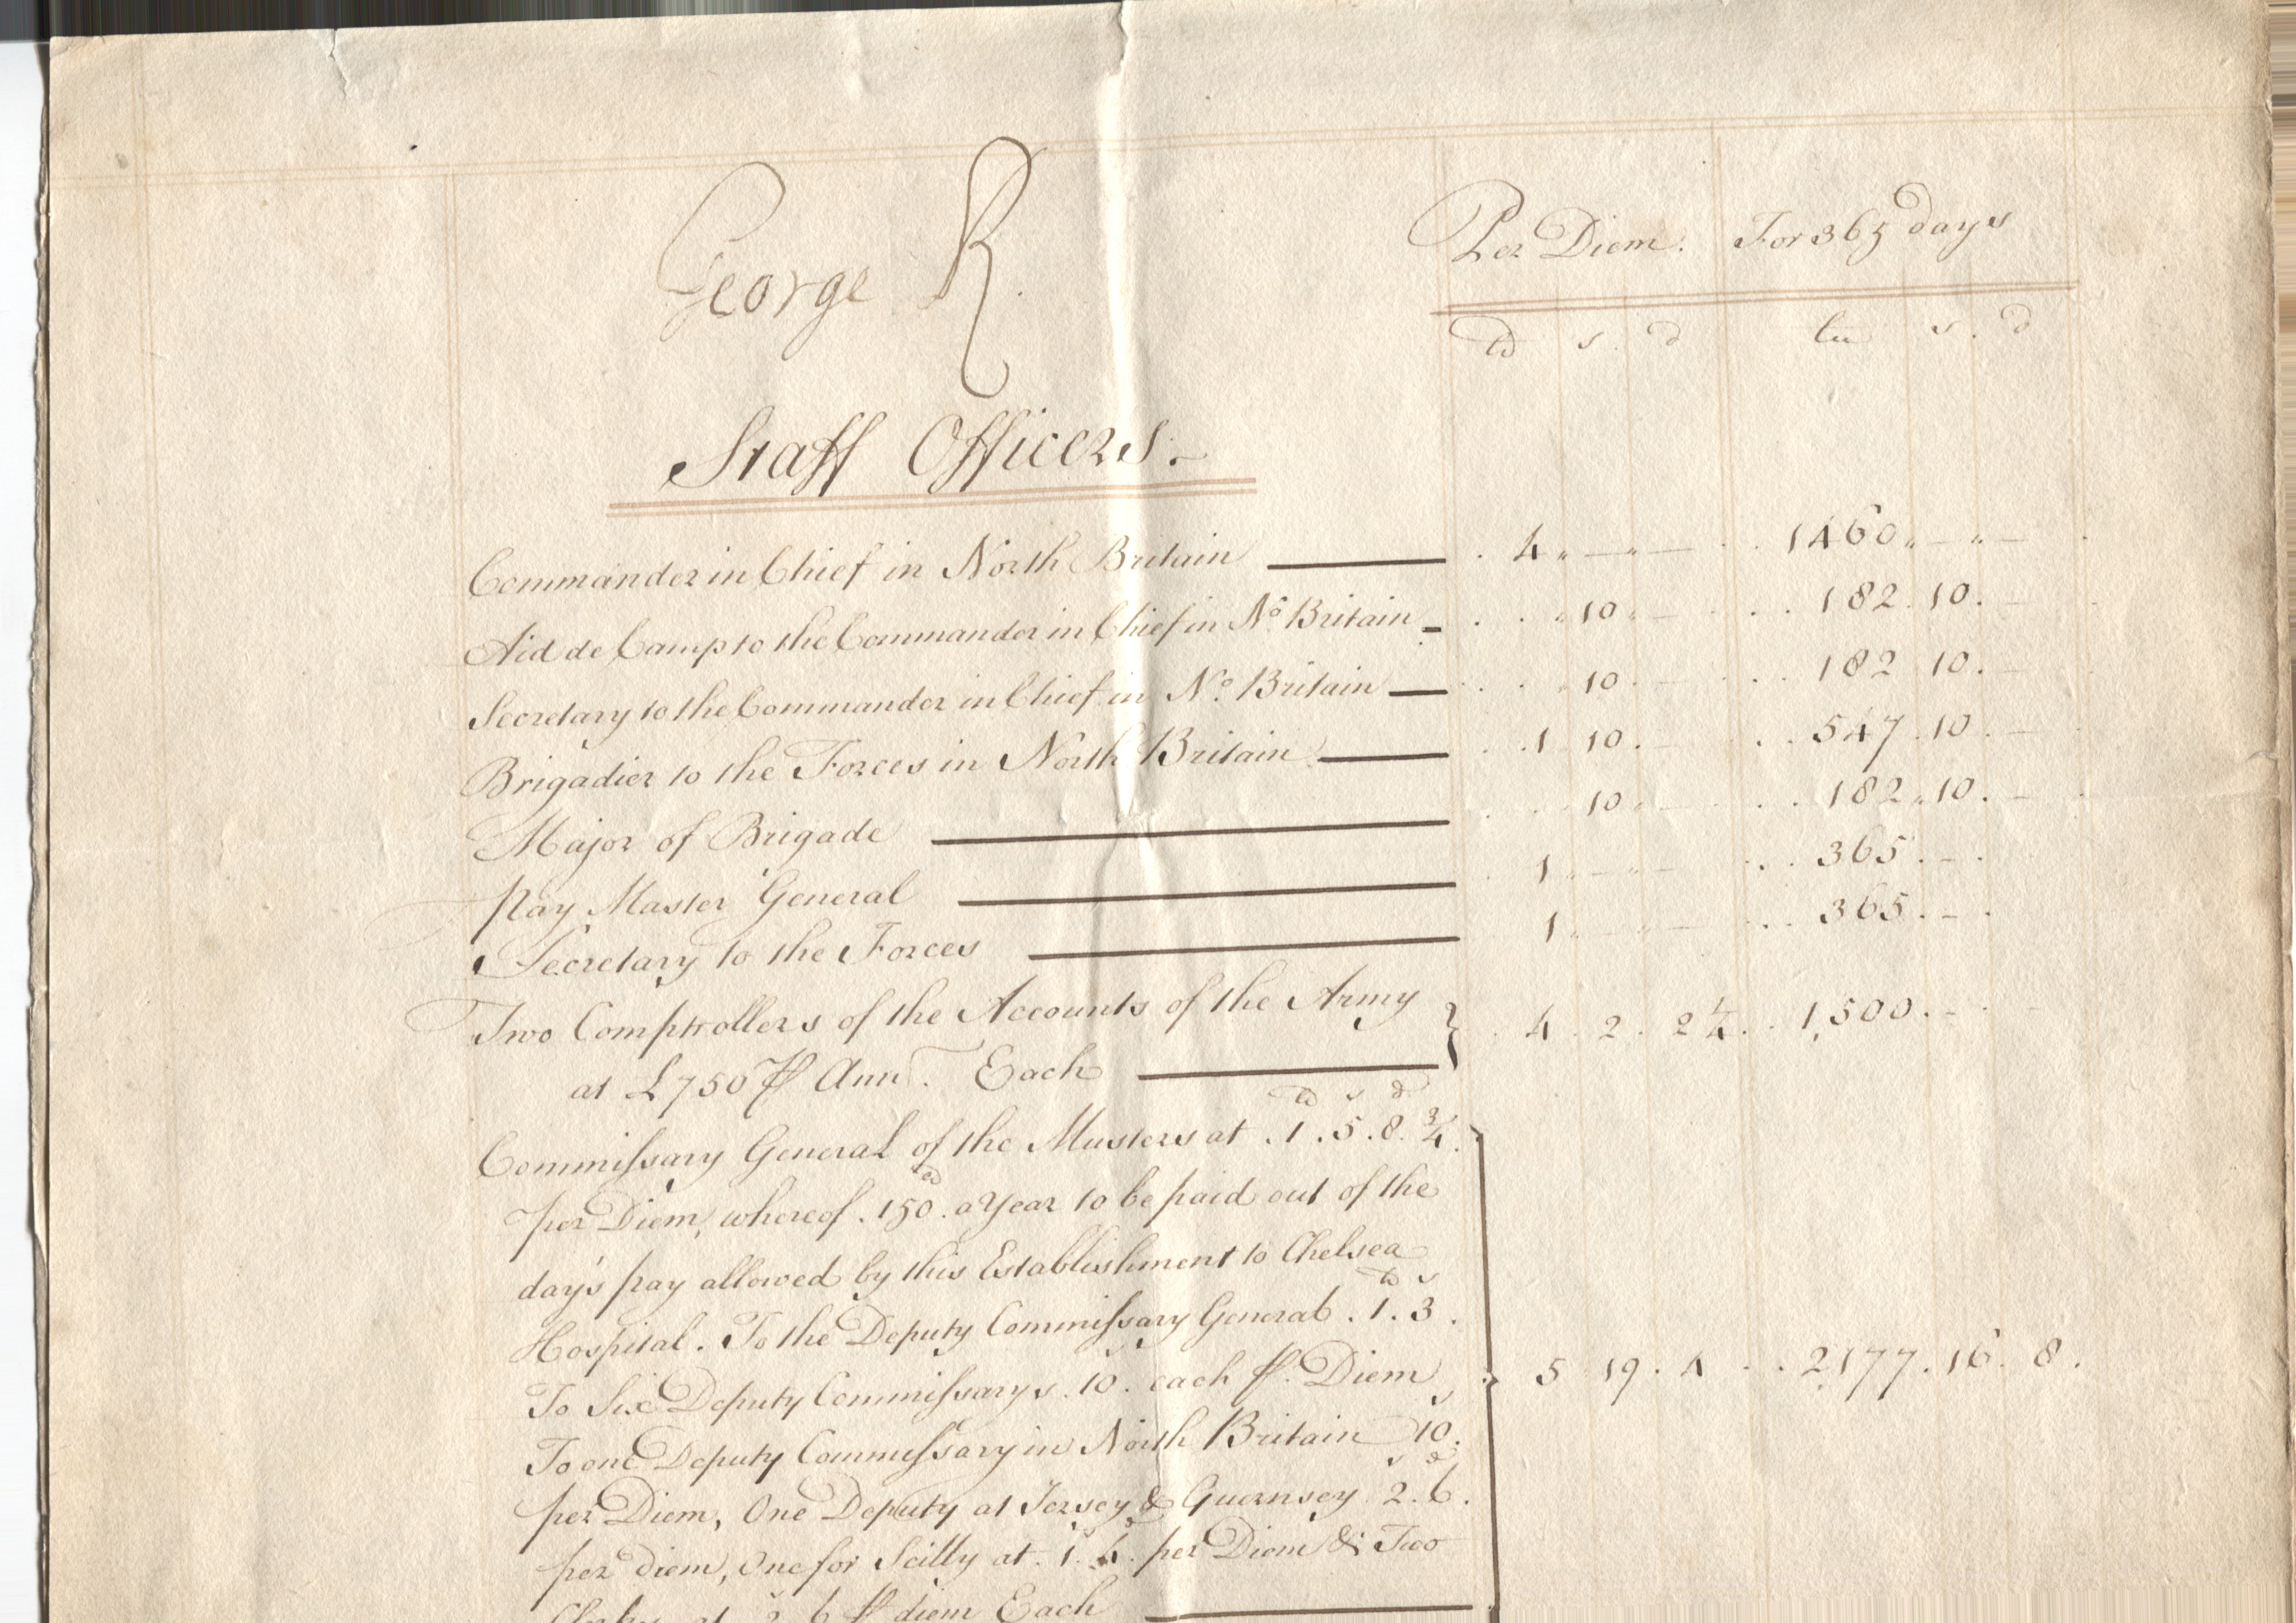 George R
Per Diem. For 365 days
£ s. d £ s. d
Staff Officers.
Commander in Chief in North Britain 4 " — " — 1460 " — " —
Aid de Camp to the Commander in Chief in No. Britain " 10 " — 182. 10. —
Secretary to the Commander in Chief in No. Britain " 10. — 182 10. —
Brigadier to the Forces in North Britain 1 10. — 547. 10. —
Major of Brigade 10 " — 182. 10. —
Pay Master General 1 " — " — 365. — .
Secretary to the Forces 1 " — " — 365. — .
Two Comptrollers of the Accounts of the Army
at £750 ⅌ Ann. Each 4. 2. 2¼. 1,500. — .
£ s d
Commissary General of the Musters at . 1 . 5 . 8. ¾.
per Diem, whereof . 150£. a Year to be paid out of the
day's pay allowed by this Establishment to Chelsea
£ s
Hospital. To the Deputy Commissary General . 1 . 3 .
To Six Deputy Commissarys . 10s. each ⅌. Diem 5 19. 4 2,177. 16. 8.
To one Deputy Commissary in North Britain 10s.
per Diem, One Deputy at Jersey & Guernsey 2s. 6d.
per diem, One for Scilly at . 1s. 6d. per Diem & Two
Clerks at 2s. 6 ⅌ diem Each